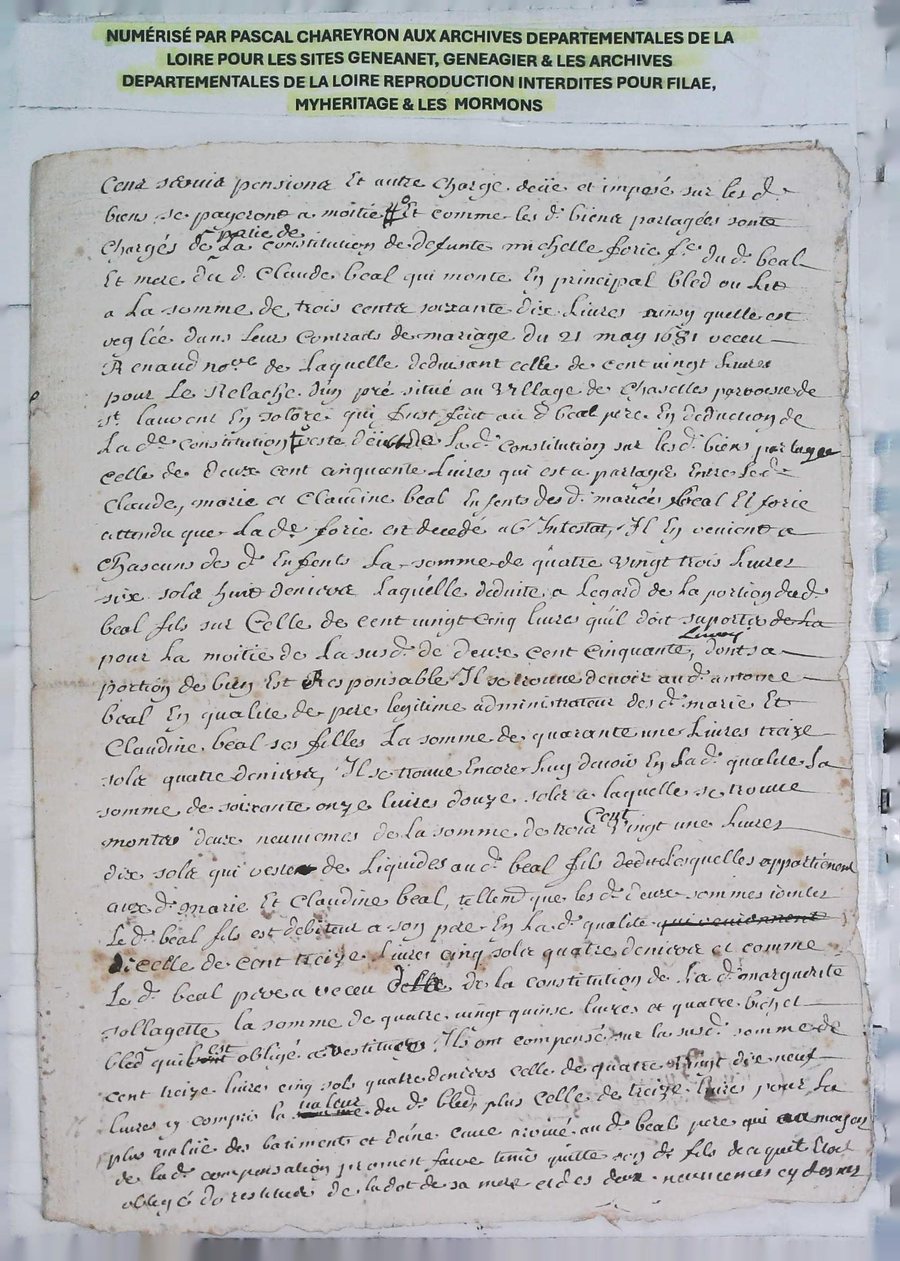 NUMÉRISÉ PAR PASCAL CHAREYRON AUX ARCHIVES DEPARTEMENTALES DE LA
LOIRE POUR LES SITES GENEANET, GENEAGIER & LES ARCHIVES
DEPARTEMENTALES DE LA LOIRE REPRODUCTION INTERDITES POUR FILAE,
MYHERITAGE & LES MORMONS
Cens servis pensions Et autre charge deüe et imposé sur les d.
biens se payeront a moitie Et comme les d. biens partagées sont
Chargés de partie de La constitution de defunte michelle forie fe du d. beal
Et mere du d. Claude beal qui monte En principal bled ou Lit
a La somme de trois cents soixante dix Livres ainsy quelle est
reglée dans leurs Contrads de mariage du 21 may 1681 receu
Renaud nore de Laquelle deduisant celle de cent vingt Livres
pour Le Relache d'un pré situé au Village de Chaselles parroisse de
st. laurent En solore qui fust fait au d. beal pere En deduction de
La de Constitution reste La d. Constitution sur les d. biens partagée
celle de deux cent cinquante Livres qui est a partager Entre Led.
Claude, marie et Claudine beal Enfents des d. mariés beal Et forie
attendu que La d. forie est decedé ab Intestat, Il En vienent a
Chascuns des d. Enfents La somme de quatre vingt trois Livres
six sols huit deniers Laquélle deduite a Legard de La portion du d.
beal fils sur Celle de cent vingt cinq livres qu'il doit suporter de La
pour La moitie de La susd. de deux cent cinquante, Livres dont sa
portion de bien Est Responsable Il se trouve devoir au d. antoine
beal En qualite de pere legitime administrateur des d. marie Et
Claudine beal ses filles La somme de quarante une Livres treize
sols quatre deniers, Il se trouve Encore Luy devoir En La d. qualite La
somme de soixante onze livres douze sols a laquelle se trouve
monter deux neuviemes de La somme de trois Cent vingt une Livres
dix sols qui restent de Liquides au d. beal fils desquelles appartienent
aux d. marie Et Claudine beal, tellemt que les d. deux sommes jointes
Le d. beal fils est debiteur a son pere En La d. qualite qui reviennent
dicelle de cent treize Livres cinq sols quatre deniers et comme
Le d. beal pere a receu de la constitution de La d. marguerite
sollagette la somme de quatre vingt quinse livres et quatre bichet
bled quil est obligé a restituer, Ils ont compensé sur la susd. somme de
cent treize livres cinq sols quatre deniers celle de quatre vingt dix neuf
livres y compris la valeur du d. bled, plus celle de treize livres pour La
plus value des batiments et d'une cuve au d. beal pere qui au moyen
de la d. compensation promet faire tenir quitte son d. fils de ce quil Etoit
obligé de restitude de la dot de sa mere et des deux neuviemes cy dessus